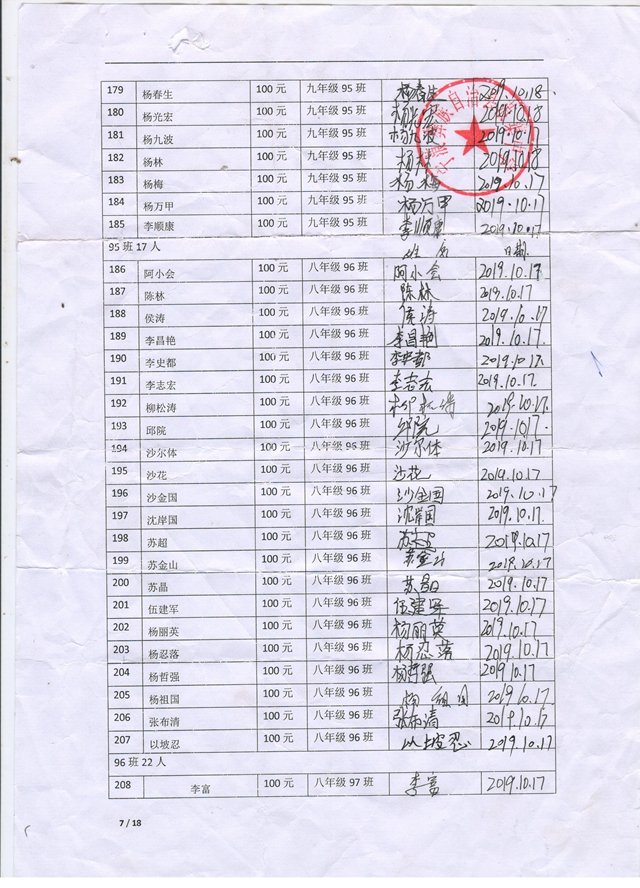 179 杨春生 100元 九年级95班 杨春生 2019.10.18
180 杨光宏 100元 九年级95班 杨光宏 2019.10.18
181 杨九波 100元 九年级95班 杨九波 2019.10.17
182 杨林 100元 九年级95班 杨林 2019.10.18
183 杨梅 100元 九年级95班 杨梅 2019.10.17
184 杨万甲 100元 九年级95班 杨万甲 2019.10.17
185 李顺康 100元 九年级95班 李顺康 2019.10.17
95班17人 姓名 日期
186 阿小会 100元 八年级96班 阿小会 2019.10.17
187 陈林 100元 八年级96班 陈林 2019.10.17
188 侯涛 100元 八年级96班 侯涛 2019.10.17
189 李昌艳 100元 八年级96班 李昌艳 2019.10.17
190 李史都 100元 八年级96班 李史都 2019.10.17
191 李志宏 100元 八年级96班 李志宏 2019.10.17
192 柳松涛 100元 八年级96班 柳松涛 2019.10.17
193 邱院 100元 八年级96班 邱院 2019.10.17
194 沙尔体 100元 八年级96班 沙尔体 2019.10.17
195 沙花 100元 八年级96班 沙花 2019.10.17
196 沙金国 100元 八年级96班 沙金国 2019.10.17
197 沈岸国 100元 八年级96班 沈岸国 2019.10.17
198 苏超 100元 八年级96班 苏超 2019.10.17
199 苏金山 100元 八年级96班 苏金山 2019.10.17
200 苏晶 100元 八年级96班 苏晶 2019.10.17
201 伍建军 100元 八年级96班 伍建军 2019.10.17
202 杨丽英 100元 八年级96班 杨丽英 2019.10.17
203 杨忍落 100元 八年级96班 杨忍落 2019.10.17
204 杨哲强 100元 八年级96班 杨哲强 2019.10.17
205 杨祖国 100元 八年级96班 杨祖国 2019.10.17
206 张布清 100元 八年级96班 张布清 2019.10.17
207 以坡忍 100元 八年级96班 以坡忍 2019.10.17
96班22人
208 李富 100元 八年级97班 李富 2019.10.17
7 / 18